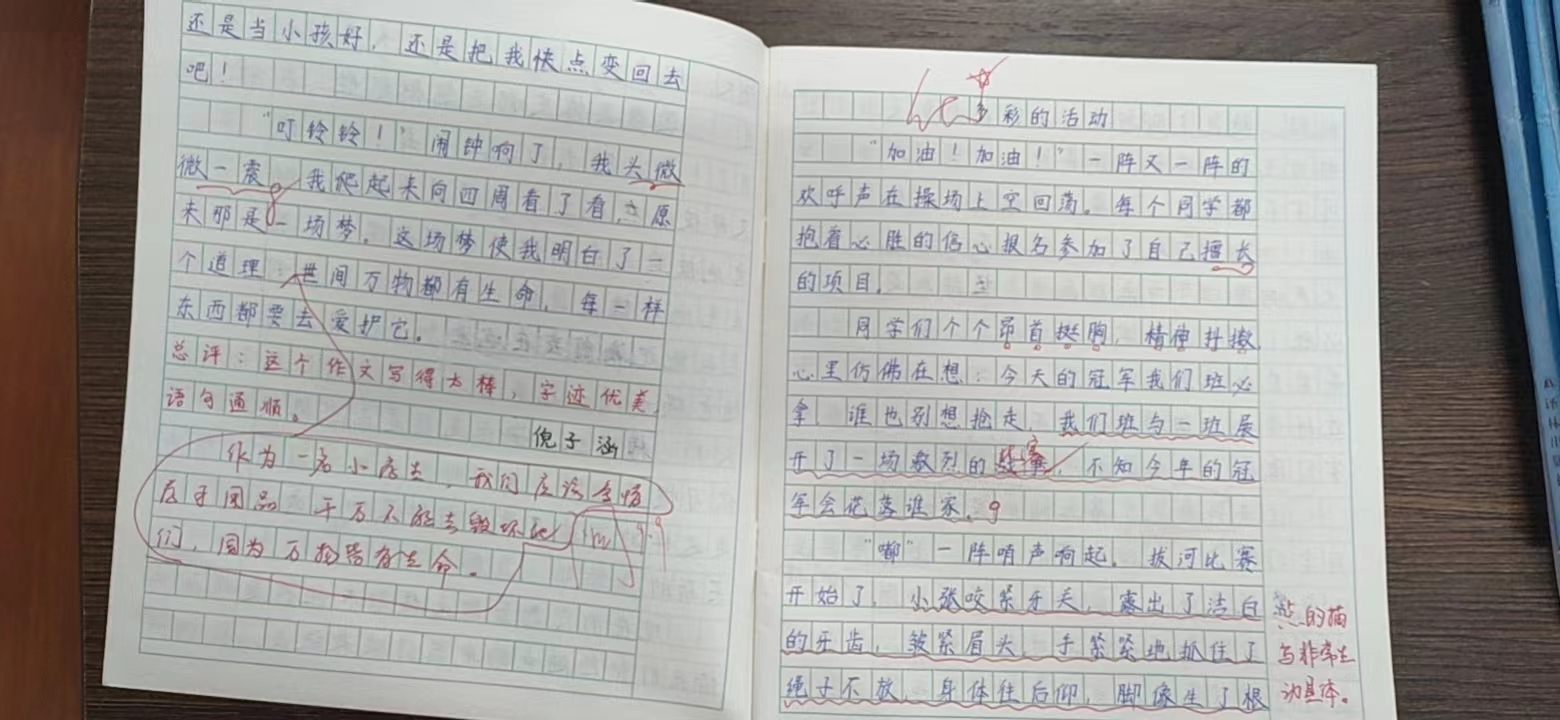 还是当小孩好，还是把我快点变回去
吧！
“叮铃铃！”闹钟响了，我头微
微一震。我爬起来向四周看了看，原
来那是一场梦。这场梦使我明白了一
个道理：世间万物都有生命，每一样
东西都要去爱护它。
总评：这个作文写得太棒，字迹优美，
语句通顺。
倪子涵
作为一名小学生，我们应该全惜
千万不能去毁坏它
们，因为万物皆有生命。
99
多彩的活动
“加油！加油！”一阵又一阵的
欢呼声在操场上空回荡。每个同学都
抱着必胜的信心报名参加了自己擅长
的项目。
同学们个个昂首挺胸，精神抖擞，
心里仿佛在想：今天的冠军我们班必
拿，谁也别想抢走。我们班与一班展
开了一场激烈的比赛，不知今年的冠
军会花落谁家。
“嘟”一阵哨声响起，拔河比赛
开始了，小张咬紧牙关，露出了洁白
的牙齿，皱紧眉头，手紧紧地抓住了
绳子不放，身体往后仰，脚像生了根
点的描
写非常生
动具体。